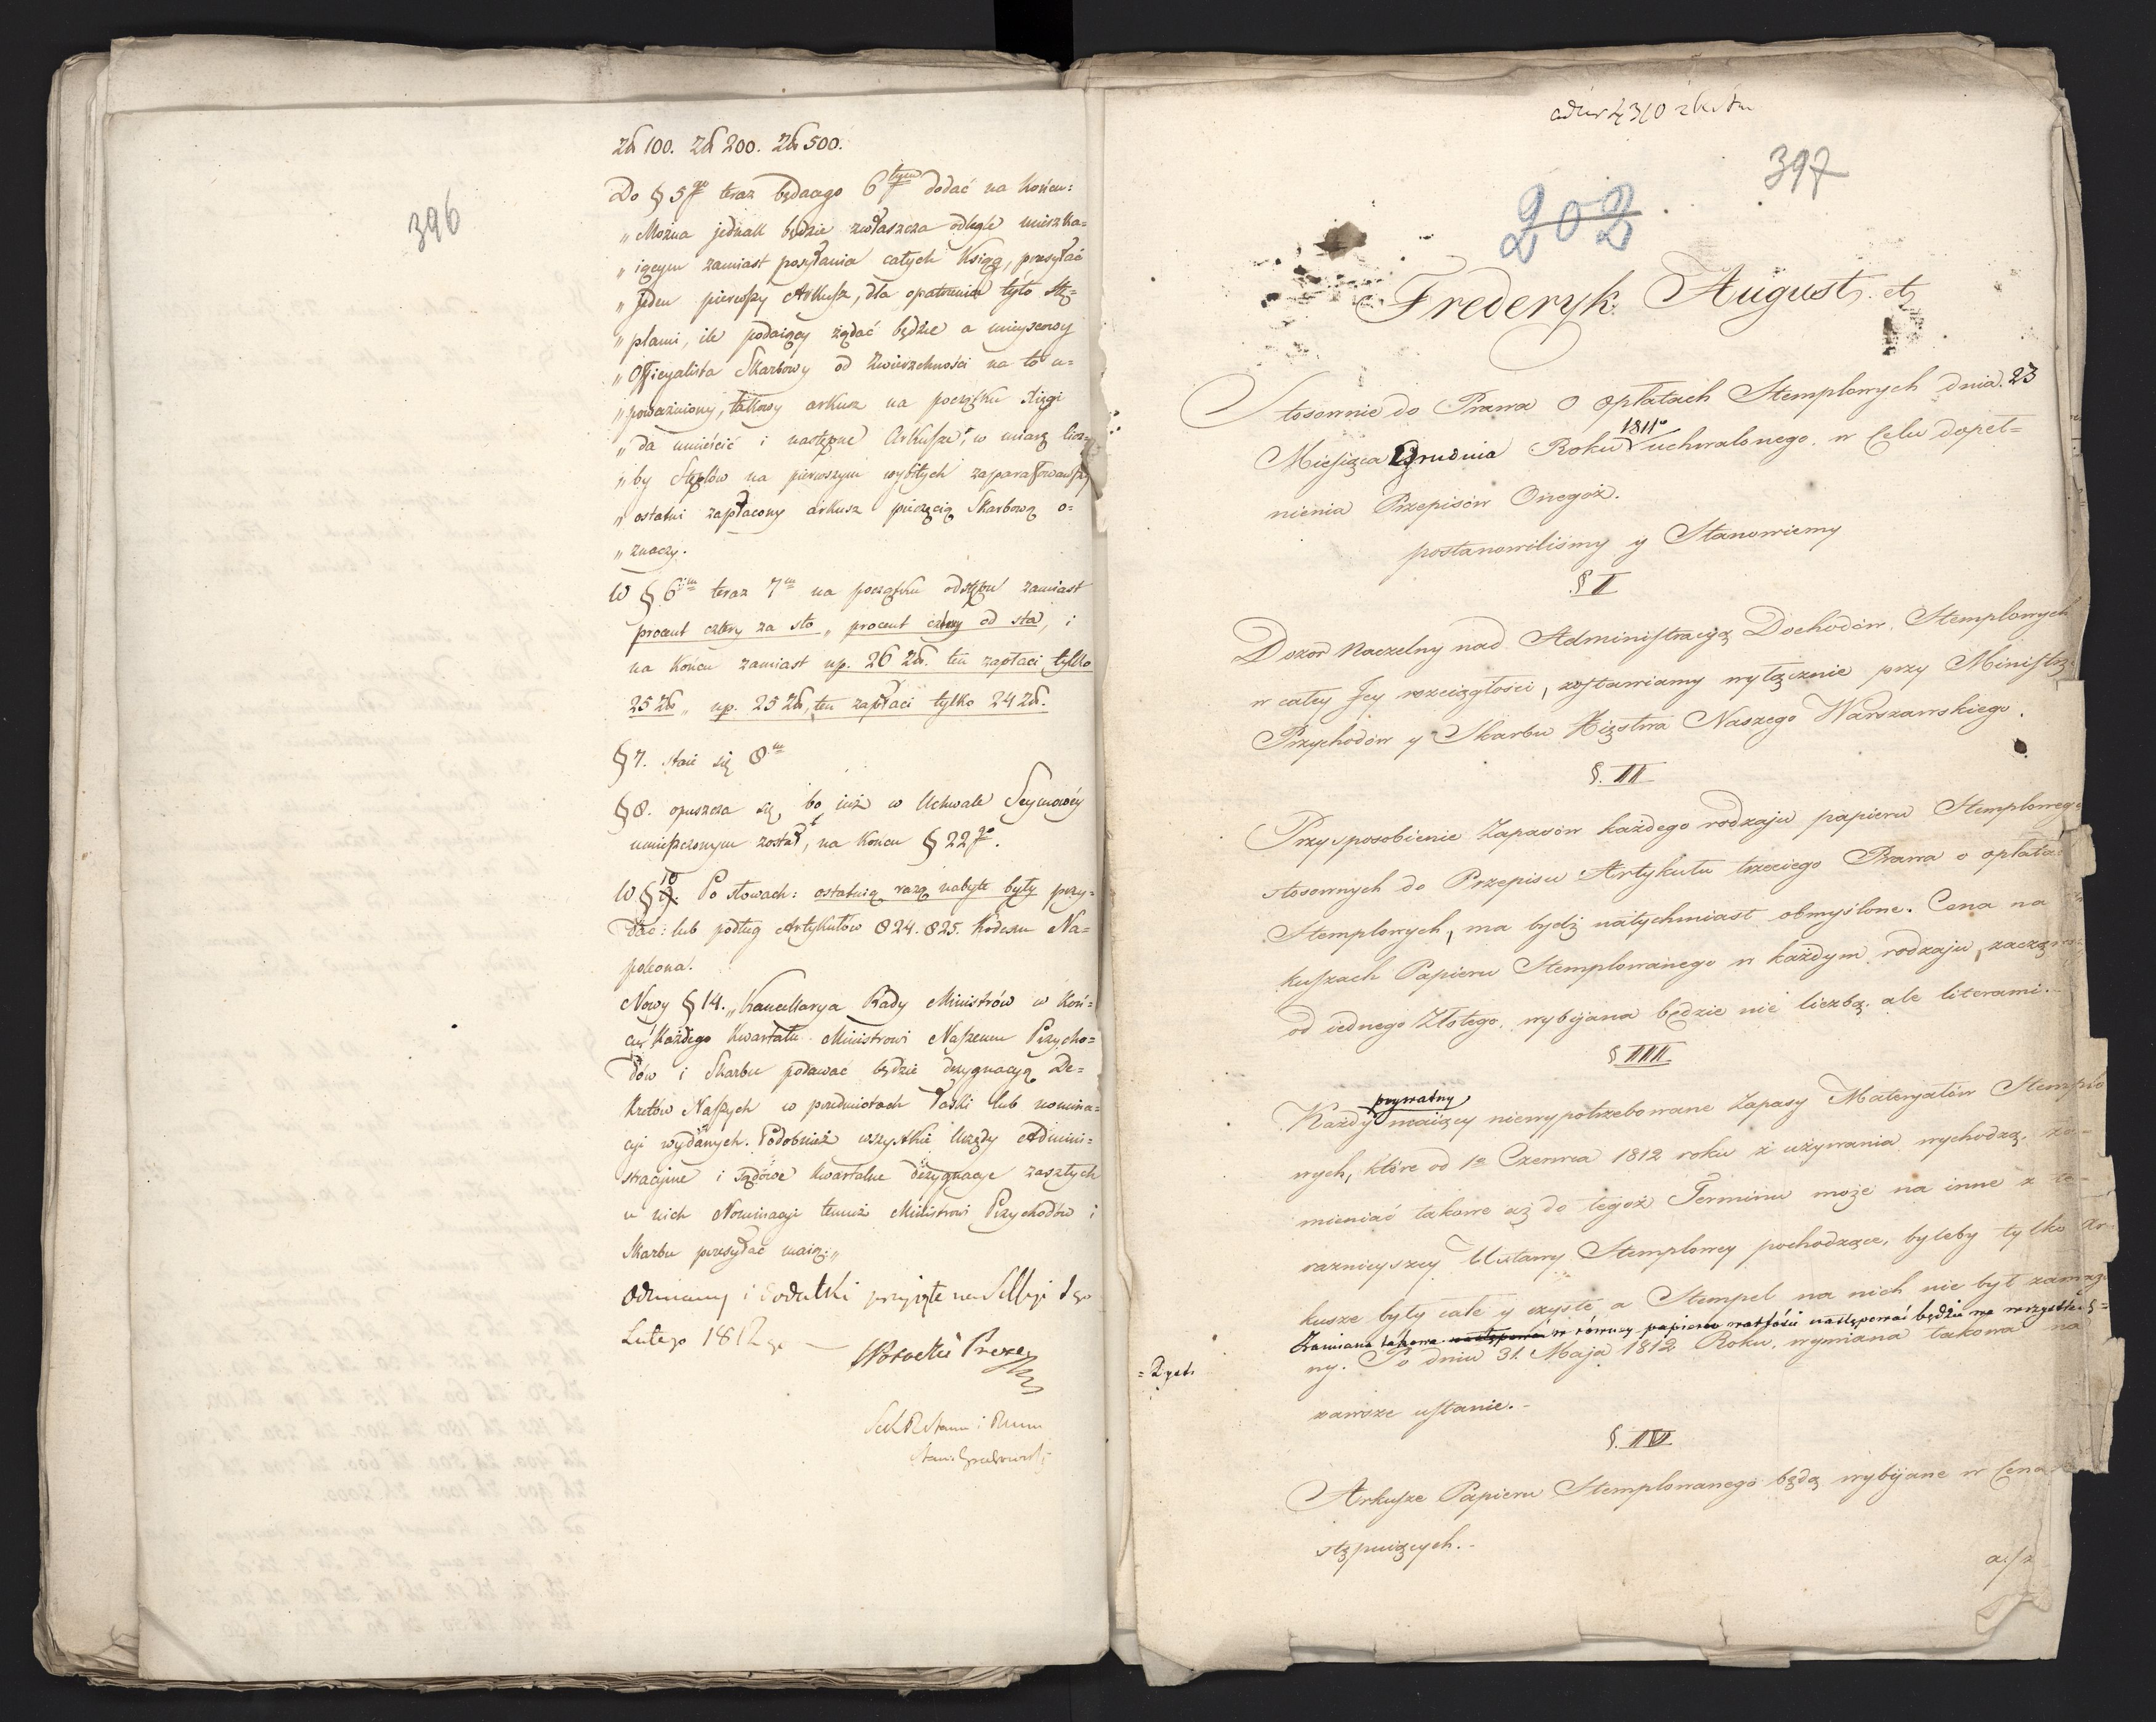 396
Zł 100. Zł 200. Zł 500.
Do § 5go teraz będącego 6tym dodać na końcu:
„Można jednak będzie zwłaszcza odlegle mieszka=
„iącym zamiast posyłania całych Ksiąg, przesyłać
„Jeden pierwszy Arkusz, dla opatrzenia tylo Stę=
„plami, ile podaiący żądać będzie a mieyscowy
„Officyalista Skarbowy od Zwierzchności na to u=
„poważniony, takowy arkusz na początku Xięgi
„da umieścić i następne Arkusze, w miarę licz=
„by Stęplów na pierwszym wybitych zaparafowawszy
„ostatni zapłacony arkusz pieczęcią Skarbową o=
„znaczy.
W § 6tm teraz 7m na początku odstępu zamiast
procent cztery za sto „procent cztery od sta, i
na końcu zamiast np. 26 Zł. ten zapłaci tylko
25 Zł „ np. 25 Zł, ten zapłaci tylko 24 Zł.
§ 7. staie się 8m
§ 8. opuszcza się, bo iuż w Uchwale Seymowéy
umieszczonym został, na końcu § 22go.
W § 10 9. Po słowach: ostatnią razą nabyte były przy=
dać: lub podług Artykułów 824. 825. Kodexu Na=
poleona.
Nowy § 14. „Kancellarya Rady Ministrów w koń=
cu Każdego Kwartału Ministrowi Naszemu Przycho=
dów i Skarbu podawać będzie dezygnacyą De=
kretów Naszych w przedmiotach łaski lub nomina=
cyi wydanych. Podobnież wszystkie Urzędy Admini=
stracyine i sądowe kwartalne dezygnacye zaszłych
w nich Nominacyi temuż Ministrowi Przychodów i
Skarbu przesyłać maią.„
Odmiany i dodatki przyięte na Sessyi 1go
Lutego 1812 go
397
202
Fryderyk August. etc
Stosownie do Prawa o opłatach Stemplowych dnia. 23
Miesiąca Grudnia Roku 1811o uchwalonego. w Celu dopeł=
nienia Przepisów Onegoż.
postanowiliśmy y Stanowiemy
§ I
Dozor Naczelny nad Administracyą Dochodów Stemplowych
w całey Jey rozciągłości, zostawiamy wyłącznie przy Ministrze
Przychodów y Skarbu Xięstwa Naszego Warszawskiego.
§. II
Przysposobienie Zapasów każdego rodzaju papieru Stemplowego
stosownych do Przepisu Artykułu trzeciego Prawa o opłata=
Stemplowych, ma bydź natychmiast obmyślone. Cena na
kuszach Papieru Stemplowanego w każdym rodzaju, zacząwszy
od iednego Złotego, wybijana będzie nie liczbą. ale literami.
§ III
Każdy prywatny maiący niewypotrzebowane Zapasy Materyałów Stemplo
wych, które od 1o Czerwca 1812 roku z używania wychodzą, za=
mieniać takowe aż do tegoż Terminu może na inne z te=
razniejszey Ustawy Stemplowey pochodzące, byleby tylko Ar=
kusze były całe y czyste, a Stempel na nich nie był zamaza=
Zamiana takowa następować w równey papieru wartości następować będzie we wszystkich=
ny. Po dniu 31. Maja 1812 Roku, wymiana takowa na
zawsze ustanie.
§. IV
Arkusze Papieru Stemplowanego będą wybijane w Cena
stępuiących.